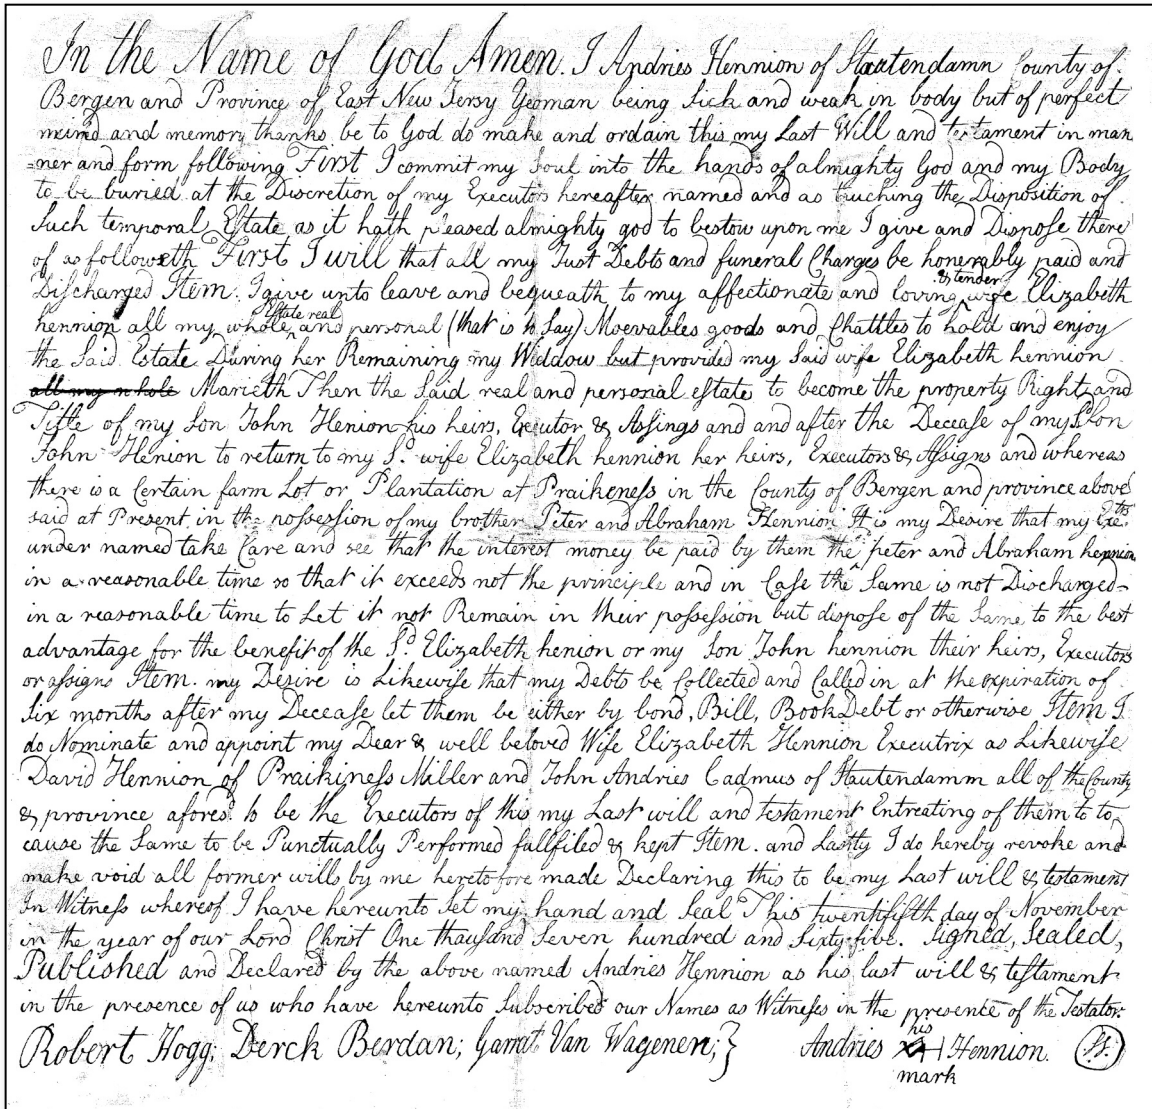 In the Name of God Amen. I Andries Hennion of Slautendamn County of
Bergen and Province of East New Jersy Yeoman being Sick and weak in body but of perfect
meind and memory thanks be to God do make and ordain this my Last Will and testament in man
=ner and form following First I commit my Soul into the hands of almighty God and my Body
to be buried at the Discretion of my Executors hereafter named and as tuching the Disposition of
Such temporal Estate as it hath pleased almighty god to bestow upon me I give and Dispose there
of as followeth First I will that all my Just Debts and funeral Charges be honerably paid and
Discharged Item. I give unto leave and bequeath to my affectionate and loving & tender wife Elizabeth
hennion all my whole Estate real and personal (that is to Say) Moevables goods and Chattles to hold and enjoy
the Said Estate During her Remaining my Widdow but provided my Said wife Elizabeth hennion
all my whole Marieth Then the Said real and personal estate to become the property Right and
Title of my Son John Henion his heirs, Executor & Assings and and after the Decease of my Sd Son
John Henion to return to my Sd. wife Elizabeth hennion her heirs, Executors & Assigns and whereas
there is a Certain farm Lot or Plantation at Praikeness in the County of Bergen and province above
said at Present in the possession of my brother Peter and Abraham Hennion It is my Desire that my Exetrs
under named take Care and see that the interest money be paid by them the peter and Abraham hennion
in a reasonable time so that it exceeds not the principle and in Case the Same is not Discharged=
in a reasonable time to Let it not Remain in their possession but dispose of the Same to the best
advantage for the benefit of the Sd Elizabeth henion or my Son John hennion their heirs, Executors
or assigns Item. my Desire is Likewise that my Debts be Collected and Called in at the expiration of
Six months after my Decease let them be either by bond, Bill, Book Debt or otherwise Item I
do Nominate and appoint my Dear & well beloved Wife Elizabeth Hennion Executrix as Likewise
David Hennion of Praikiness Miller and John Andries Cadmus of Slautendamm all of the County
& province aforesd. to be the Executors of this my Last will and testament Entreating of them to to
cause the Same to be Punctually Performed fullfiled & kept Item. and Lastly I do hereby revoke and
make void all former wills by me heretofore made Declaring this to be my Last will & testament
In Witness whereof I have hereunto Set my hand and Seal This twentififth day of November
in the year of our Lord Christ One thausand Seven hundred and Sixty five. Signed, Sealed,
Published and Declared by the above named Andries Hennion as his last will & testament
in the presence of us who have hereunto Subscribed our Names as Witness in the presence of the Testator.
Robert Hogg; Derck Berdan; Garrat Van Wagenen; } Andries his mark Hennion.